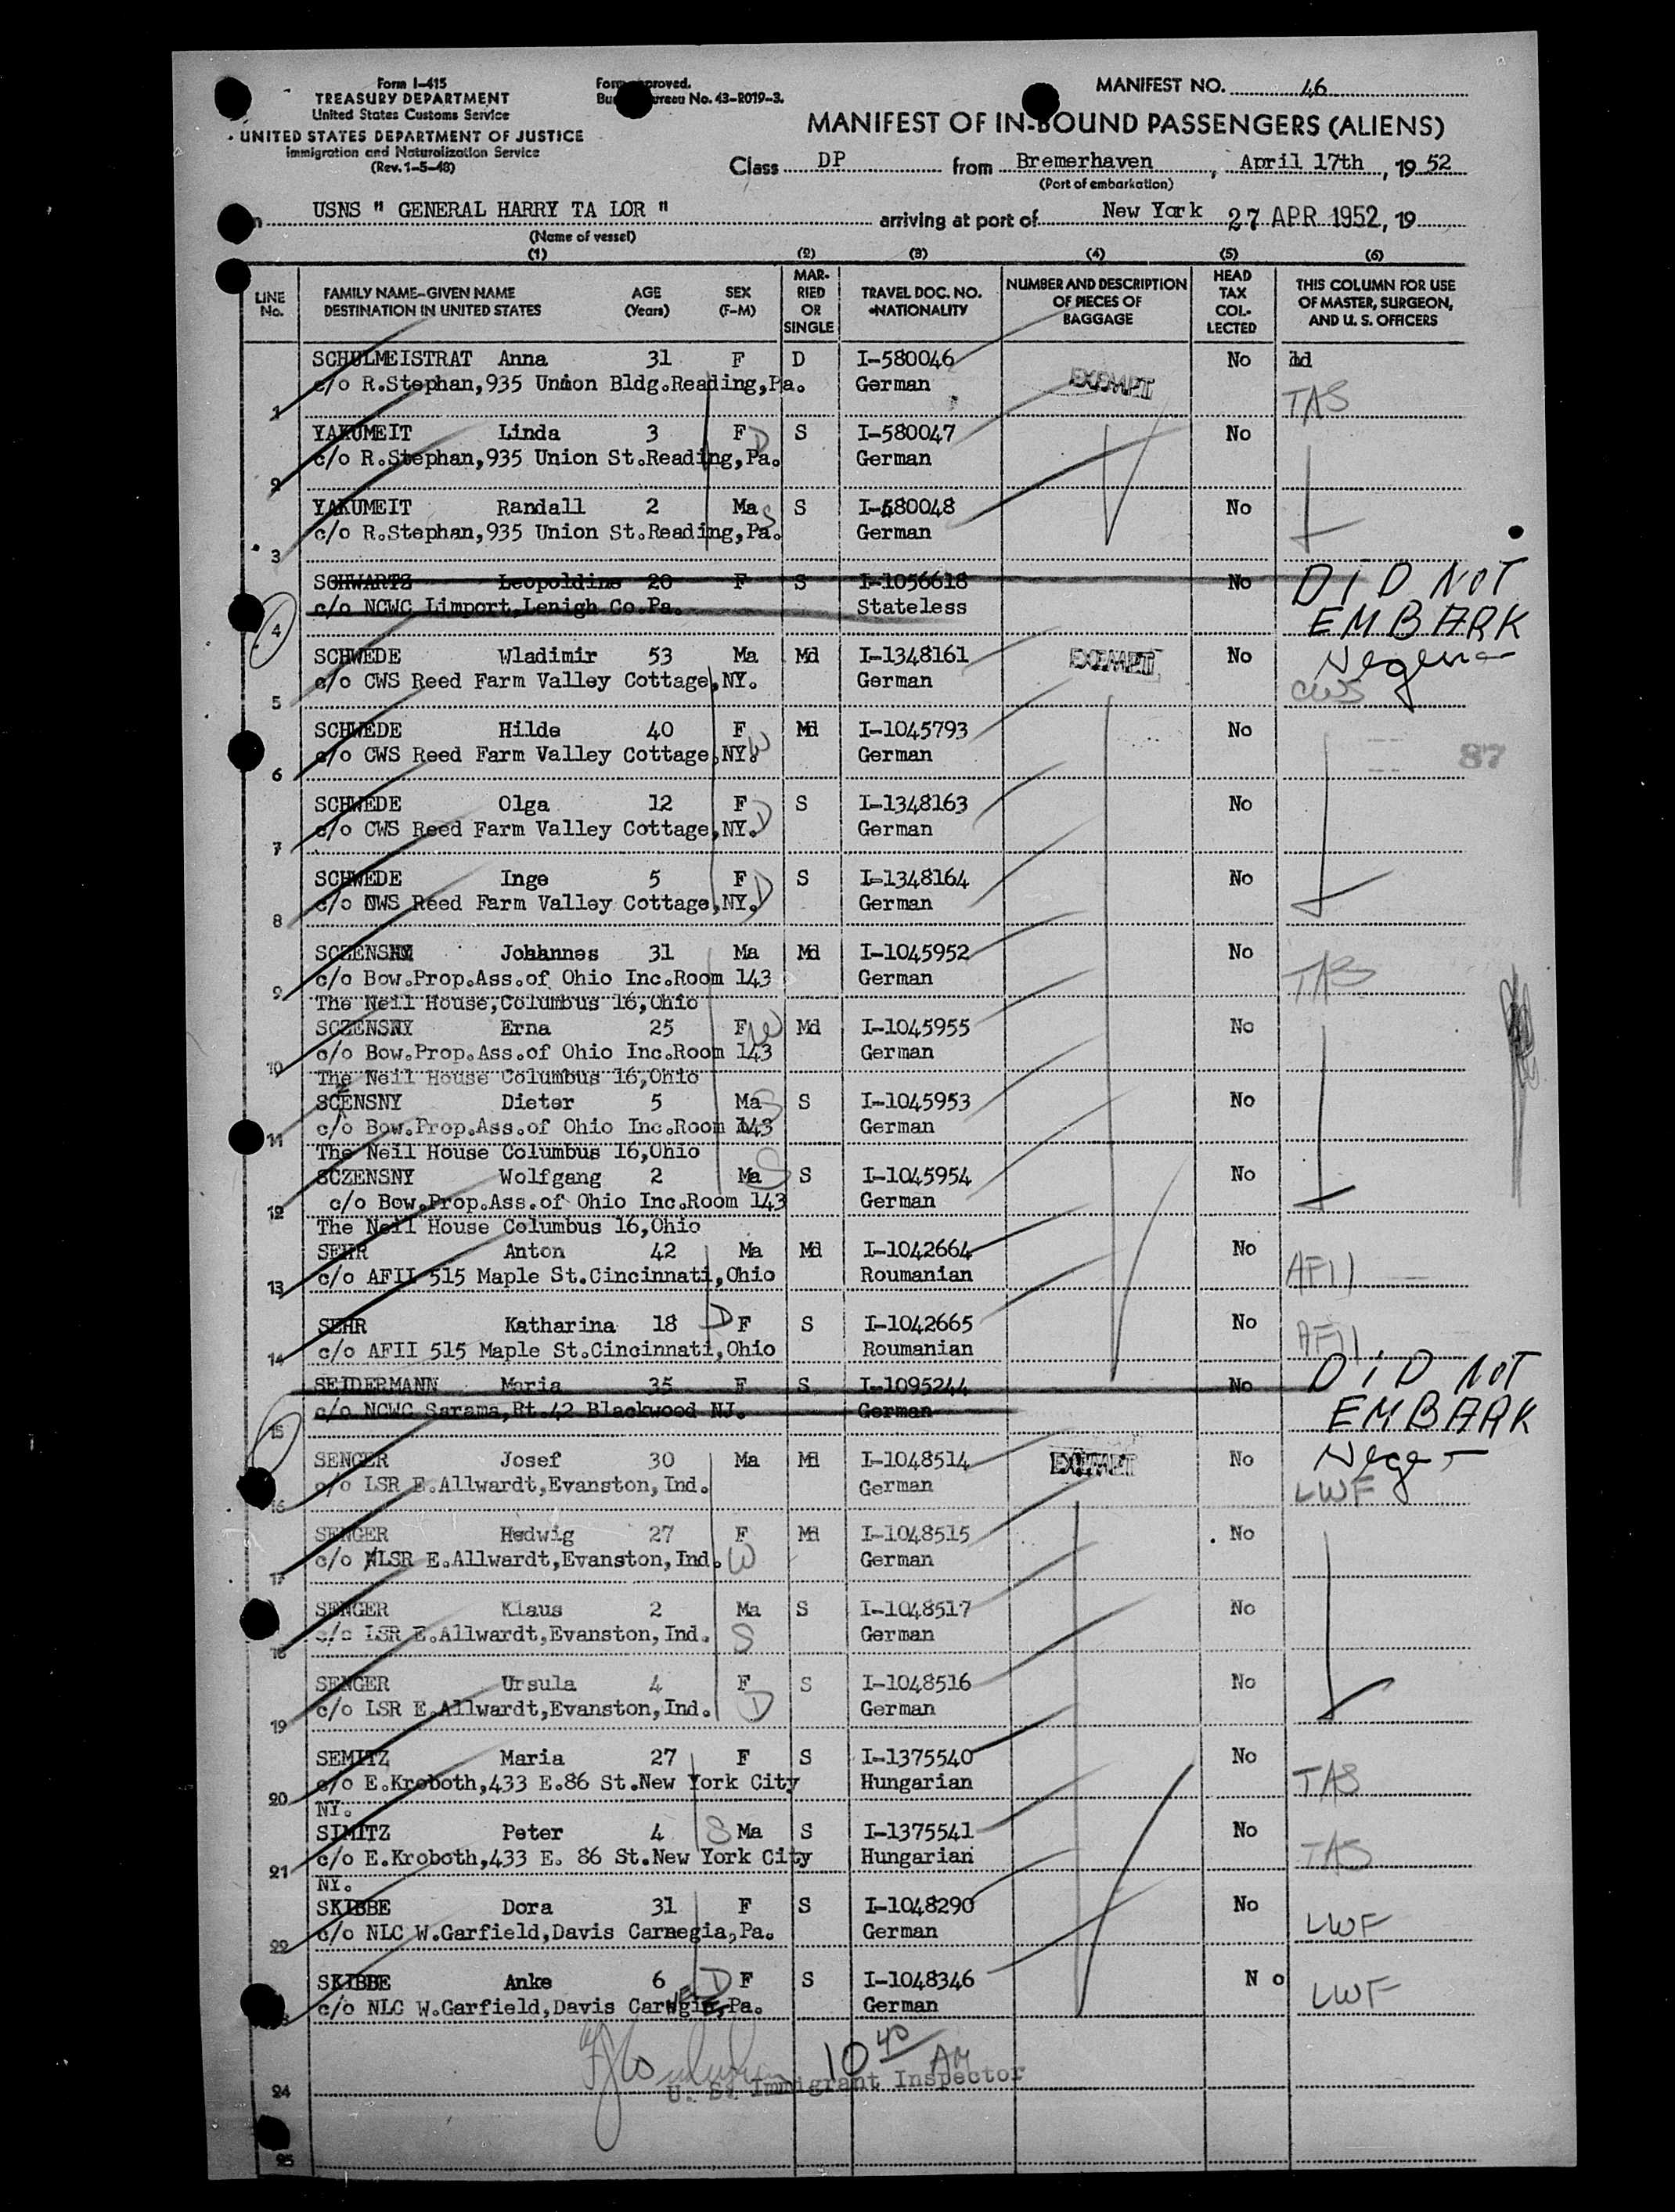 Form I-415
TREASURY DEPARTMENT
United States Customs Service
UNITED STATES DEPARTMENT OF JUSTICE
Immigration and Naturalization Service
(Rev. 1-5-48)
Form approved.
Bureau No. 43-R019-3.
MANIFEST NO. 46
MANIFEST OF IN-BOUND PASSENGERS (ALIENS)
Class DP from Bremerhaven, April 17th, 19 52
(Port of embarkation)
USNS " GENERAL HARRY TA LOR " arriving at port of New York 27 APR 1952, 19
(Name of vessel)
(1) (2) (3) (4) (5) (6)
LINE No. FAMILY NAME-GIVEN NAME DESTINATION IN UNITED STATES AGE (Years) SEX (F-M) MARRIED OR SINGLE TRAVEL DOC. NO. NATIONALITY NUMBER AND DESCRIPTION OF PIECES OF BAGGAGE HEAD TAX COLLECTED THIS COLUMN FOR USE OF MASTER, SURGEON, AND U. S. OFFICERS
SCHULMEISTRAT Anna 31 F D I-580046 No
c/o R.Stephan,935 Union Bldg.Reading,Pa. German EXEMPT TAS
1
YAKUMEIT Linda 3 F D S I-580047 No
c/o R.Stephan,935 Union St.Reading,Pa. German
2
YAKUMEIT Randall 2 Ma S S I-580048 No
c/o R.Stephan,935 Union St.Reading,Pa. German
3
SCHWARTZ Leopoldine 20 F S I-1056618 No DID NOT
c/o NCWC Limport,Lenigh Co.Pa. Stateless EMBARK
4
SCHWEDE Wladimir 53 Ma Md I-1348161 EXEMPT No
c/o CWS Reed Farm Valley Cottage,NY. German CWS
5
SCHWEDE Hilde 40 F W Md I-1045793 No
c/o CWS Reed Farm Valley Cottage,NY. German 87
6
SCHWEDE Olga 12 F D S I-1348163 No
c/o CWS Reed Farm Valley Cottage,NY. German
7
SCHWEDE Inge 5 F D S I-1348164 No
c/o CWS Reed Farm Valley Cottage,NY. German
8
SCZENSNY Johannes 31 Ma Md I-1045952 No
c/o Bow.Prop.Ass.of Ohio Inc.Room 143 German TAS
9
The Neil House,Columbus 16,Ohio
SCZENSNY Erna 25 F W Md I-1045955 No
c/o Bow.Prop.Ass.of Ohio Inc.Room 143 German
10
The Neil House Columbus 16,Ohio
SCZENSNY Dieter 5 Ma S S I-1045953 No
c/o Bow.Prop.Ass.of Ohio Inc.Room 143 German
11
The Neil House Columbus 16,Ohio
SCZENSNY Wolfgang 2 Ma S S I-1045954 No
c/o Bow.Prop.Ass.of Ohio Inc.Room 143 German
12
The Neil House Columbus 16,Ohio
SEHR Anton 42 Ma Md I-1042664 No
c/o AFII 515 Maple St.Cincinnati,Ohio Roumanian AFII
13
SEHR Katharina 18 D F S I-1042665 No
c/o AFII 515 Maple St.Cincinnati,Ohio Roumanian AFII
14
SEIDERMANN Maria 35 F S I-1095244 No DID NOT
c/o NCWC Sarama,Rt.42 Blackwood NJ. German EMBARK
15
SENGER Josef 30 Ma Md I-1048514 EXEMPT No
c/o LSR E.Allwardt,Evanston,Ind. German LWF
16
SENGER Hedwig 27 F Md I-1048515 No
c/o NLSR E.Allwardt,Evanston,Ind. W German
17
SENGER Klaus 2 Ma S I-1048517 No
c/o LSR E.Allwardt,Evanston,Ind. S German
18
SENGER Ursula 4 F S I-1048516 No
c/o LSR E.Allwardt,Evanston,Ind. D German
19
SEMITZ Maria 27 F S I-1375540 No
c/o E.Kroboth,433 E.86 St.New York City Hungarian TAS
20
NY.
SIMITZ Peter 4 S Ma S I-1375541 No
c/o E.Kroboth,433 E. 86 St.New York City Hungarian TAS
21
NY.
SKIBBE Dora 31 F S I-1048290 No
c/o NLC W.Garfield,Davis Carnegia,Pa. German LWF
22
SKIBBE Anke 6 D F S I-1048346 N o
c/o NLC W.Garfield,Davis Carnegie,Pa. German LWF
10 40 AM
U. S. Immigrant Inspector
24
25